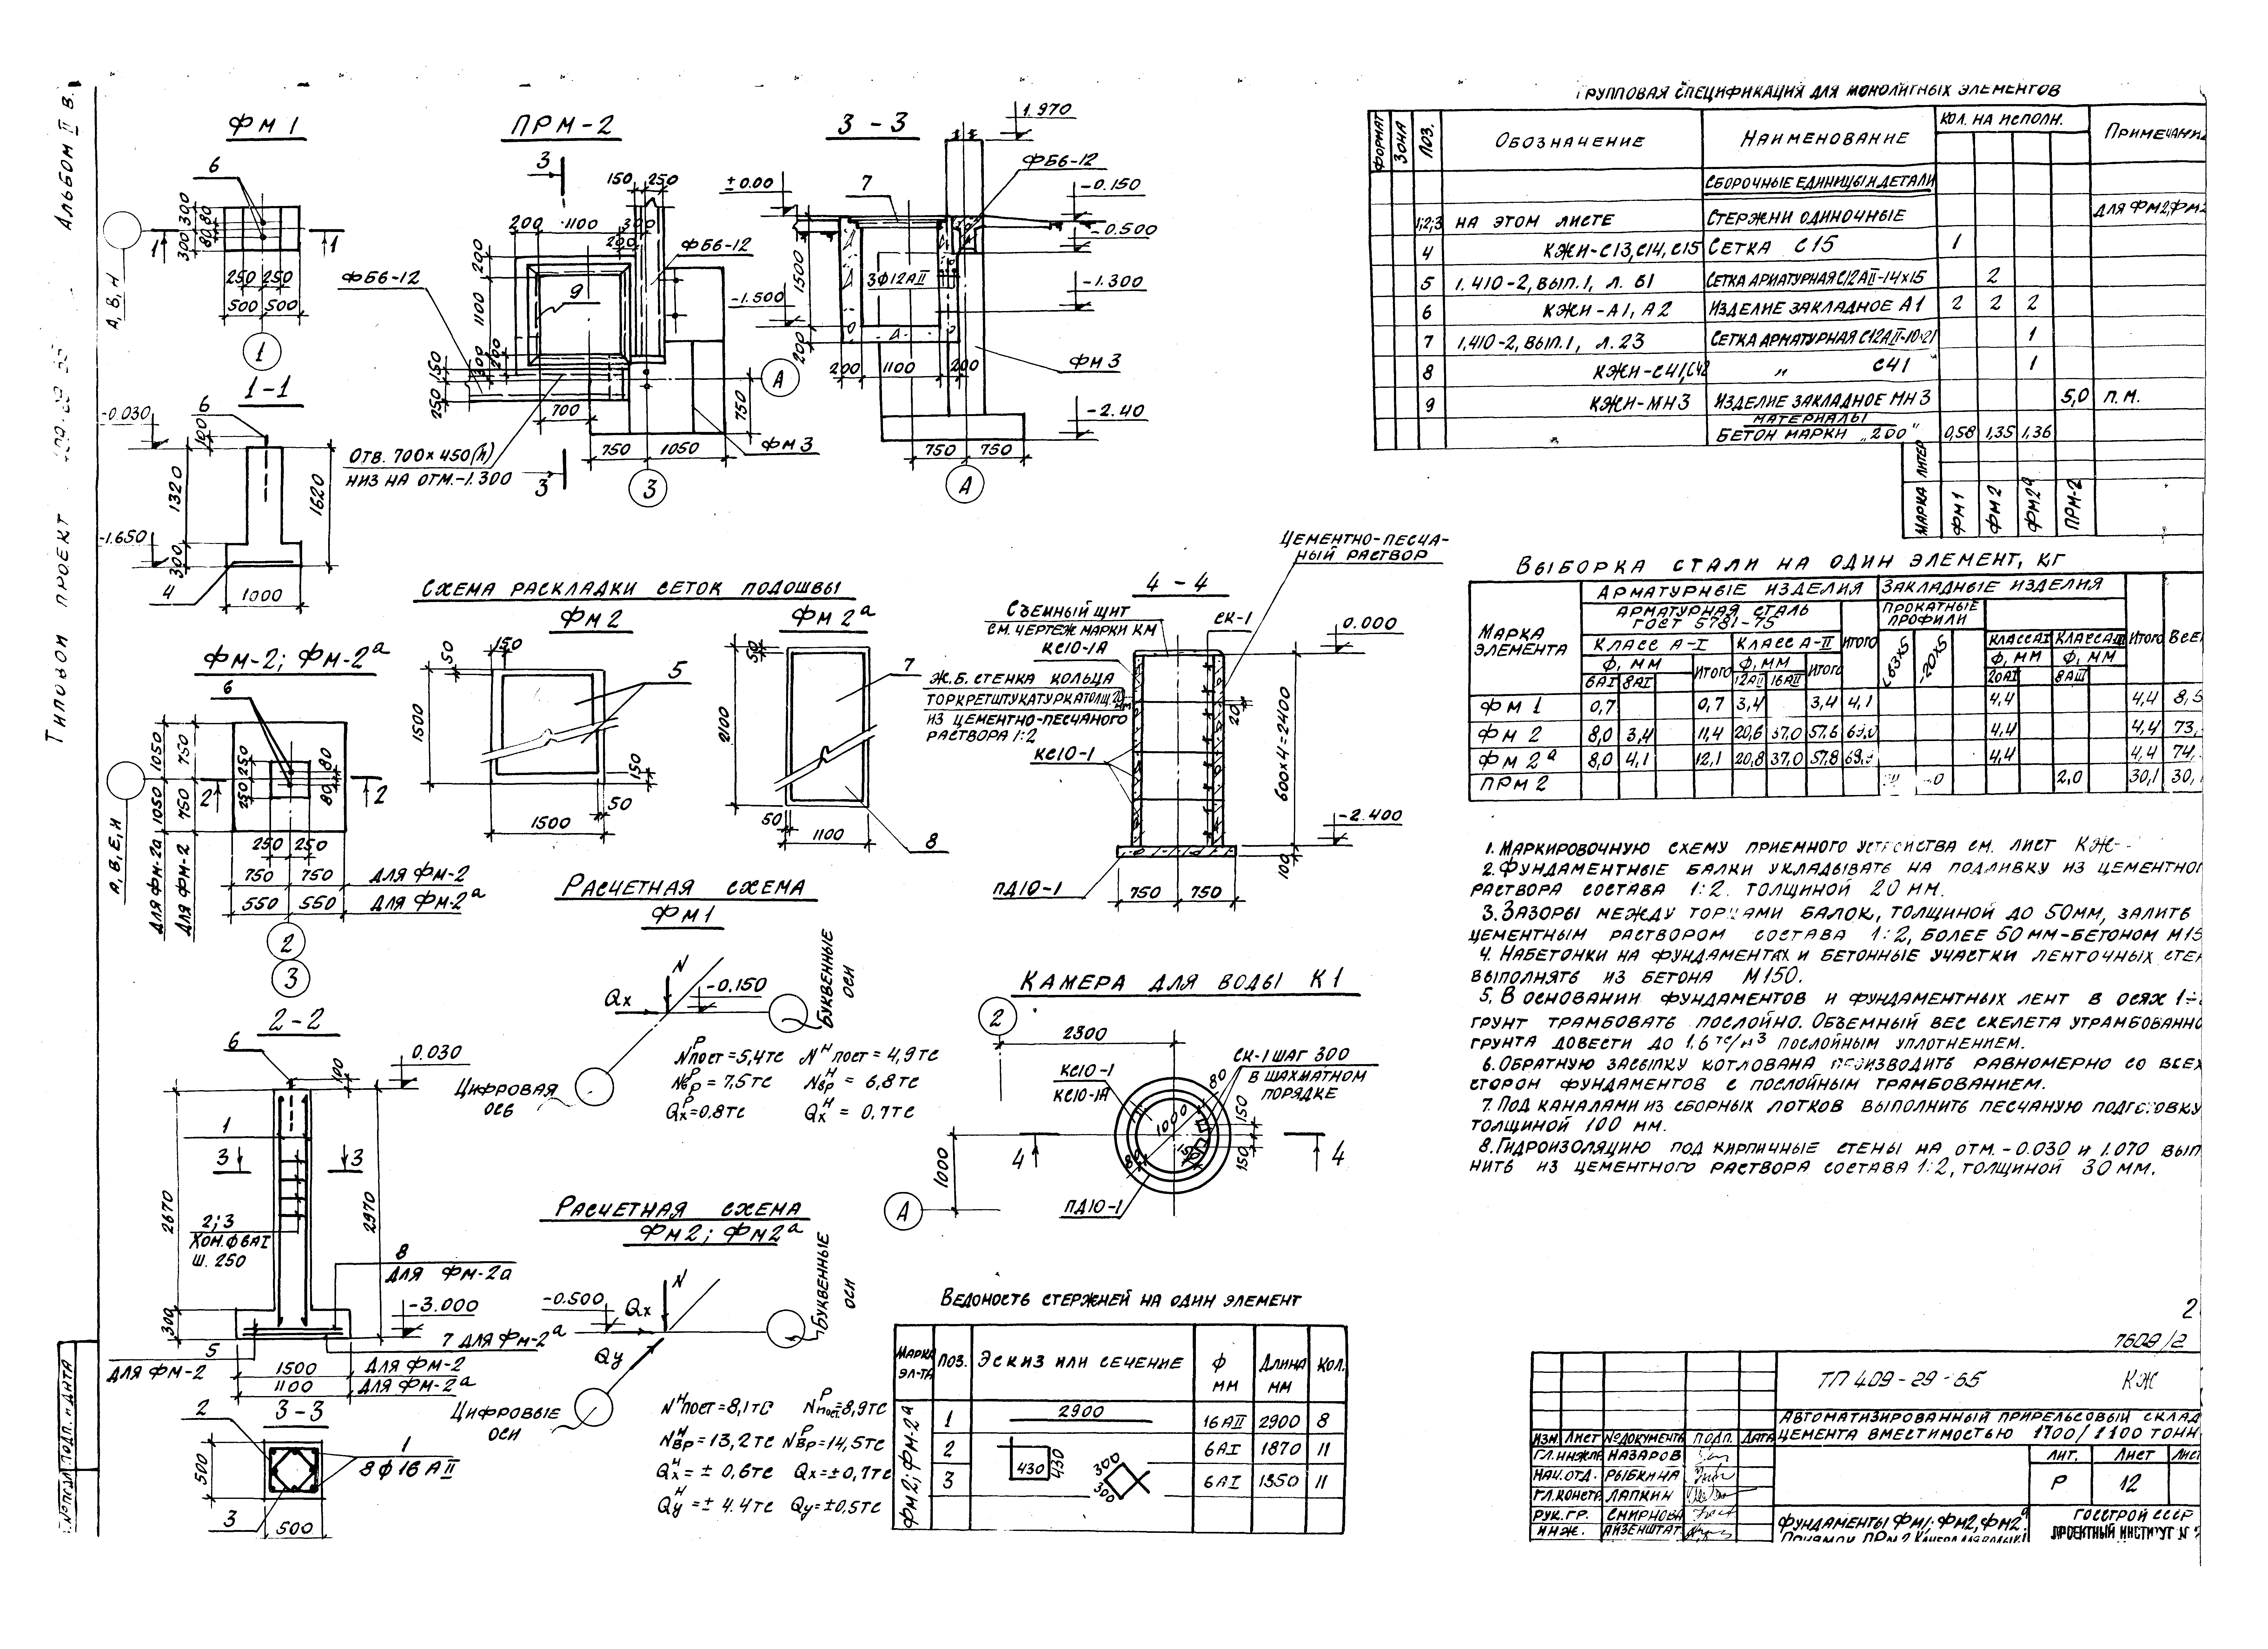 Типовой проект
Альбом II в.
ФМ1
6
300 300
80 80
1
1
А, В, Н
250 250
500 500
1
1-1
-0.030
6
100
1320
1620
-1.650
300
4
1000
ПРМ-2
3
150 250
200 1100 300
200
200
1100
ФБ6-12
ФБ6-12
9
200
300
150
250
700
А
750
ФМ3
750 1050
Отв. 700×450(h)
низ на отм.-1.300
3
3
3-3
1.970
ФБ6-12
± 0.00
7
-0.150
-0.500
1500
3Ф12АII
-1.500
-1.300
200
200 1100 200
ФМ3
-2.40
750 750
А
Схема раскладки сеток подошвы
ФМ2
ФМ2а
50
150
1500
5
150
50
1500
50
2100
7
50
1100
8
ФМ-2; ФМ-2а
6
1050
750
250
80
80
250
2
2
1050
750
А, В, Е, И
Для ФМ-2а
Для ФМ-2
250 250
750 750 Для ФМ-2
550 550 Для ФМ-2а
2
3
2-2
6
100
0.030
1
3
3
2670
2970
2;3
Хом. Ф6АI
ш. 250
8
Для ФМ-2а
-3.000
300
5
Для ФМ-2
7 Для ФМ-2а
1500 Для ФМ-2
1100 Для ФМ-2а
3-3
2
1
8Ф16АII
500
3
500
4-4
Цементно-песча-
ный раствор
Съемный щит
см. чертеж марки КМ
СК-1
0.000
КС10-1А
Ж.Б. стенка кольца
Торкретштукатурка толщ. 20 мм
из цементно-песчаного
раствора 1:2
20
КС10-1
600×4=2400
-2.400
ПД10-1
750 750
100
Расчетная схема
ФМ1
N
Qx
-0.150
Буквенные
оси
Цифровая
ось
Nᴾпост=5,4тс Nᴴпост=4,9тс
Nᴾвр=7,5тс Nᴴвр=6,8тс
Qxᴾ=0.8тс Qxᴴ=0.7тс
Камера для воды К1
2
2300
КС10-1
КС10-1А
СК-1 шаг 300
в шахматном
порядке
80
1000
150
150
80
150
4
4
1000
ПД10-1
А
Расчетная схема
ФМ2; ФМ2а
-0.500
N
Qx
Qy
Буквенные
оси
Цифровые
оси
Nᴴпост=8,1тс Nᴾпост=8,9тс
Nᴴвр=13,2тс Nᴾвр=14,5тс
Qxᴴ=±0,6тс Qx=±0,7тс
Qyᴴ=±4.4тс Qy=±0,5тс
Ведомость стержней на один элемент
Марка эл-та Поз. Эскиз или сечение Ф мм Длина мм Кол.
ФМ2; ФМ-2а
1 2900 16АII 2900 8
2 430 430 6АI 1870 11
3 300 300 6АI 1350 11
Групповая спецификация для монолитных элементов
Формат Зона Поз. Обозначение Наименование Кол. на исполн.
Сборочные единицы и детали
1;2;3 На этом листе Стержни одиночные Для ФМ2, ФМ2
4 КЖИ-С13, С14, С15 Сетка С15 1
5 1.410-2, вып.1, л. 61 Сетка арматурная С12АII-14×15 2
6 КЖИ-А1, А2 Изделие закладное А1 2 2 2
7 1.410-2, вып.1, л. 23 Сетка арматурная С12АII-10×21 1
8 КЖИ-С41, С42 „ С41 1
9 КЖИ-МН3 Изделие закладное МН3 5,0 п.м.
Материалы
Бетон марки „200" 0,58 1,35 1,36
Марка Литер
ФМ1 ФМ2 ФМ2а ПРМ-2
Выборка стали на один элемент, кг
Марка элемента
Арматурные изделия Закладные изделия
Арматурная сталь
ГОСТ 5781-75
Прокатные профили
Класс А-I Класс А-II Итого
Класс АI Класс АIII Итого
Ф, мм Итого Ф, мм Итого
6АI 8АI 12АII 16АII
∠63×5 -20×5
Ф, мм Ф, мм
20АI 8АIII
ФМ1 0,7 0,7 3,4 3,4 4,1 4,4 4,4
ФМ2 8,0 3,4 11,4 20,6 37,0 57,6 69,0 4,4 4,4
ФМ2а 8,0 4,1 12,1 20,8 37,0 57,8 4,4 4,4
ПРМ2 2,0 30,1
1. Маркировочную схему приемного устройства см. лист КЖ-
2. Фундаментные балки укладывать на подливку из цементног
раствора состава 1:2. толщиной 20 мм.
3. Зазоры между торцами балок, толщиной до 50мм, залить
цементным раствором состава 1:2, более 50мм-бетоном М15
4. Набетонки на фундаментах и бетонные участки ленточных стен
выполнять из бетона М150.
5. В основании фундаментов и фундаментных лент в осях 1÷
грунт трамбовать послойно. Объемный вес скелета утрамбованно
грунта довести до 1,6 тс/м³ послойным уплотнением.
6. Обратную засыпку котлована производить равномерно со всех
сторон фундаментов с послойным трамбованием.
7. Под каналами из сборных лотков выполнить песчаную подготовку
толщиной 100 мм.
8. Гидроизоляцию под кирпичные стены на отм. -0.030 и 1.070 вып
нить из цементного раствора состава 1:2, толщиной 30 мм.
2
7609/2
ТП 409-29-65 КЖ
Автоматизированный прирельсовый склад
цемента вместимостью 1700/1100 тонн
Изм. Лист №документа Подп. Дата
Гл.инж.пр Назаров
Нач.отд. Рыбкина
Гл.констр Лапкин
Рук.гр. Смирнова
Инж. Айзенштат
Лит. Лист
Р 12
Фундаменты ФМ1; ФМ2, ФМ2а;
Приямок ПРМ2
Госстрой СССР
Проектный институт №
Подп. и дата